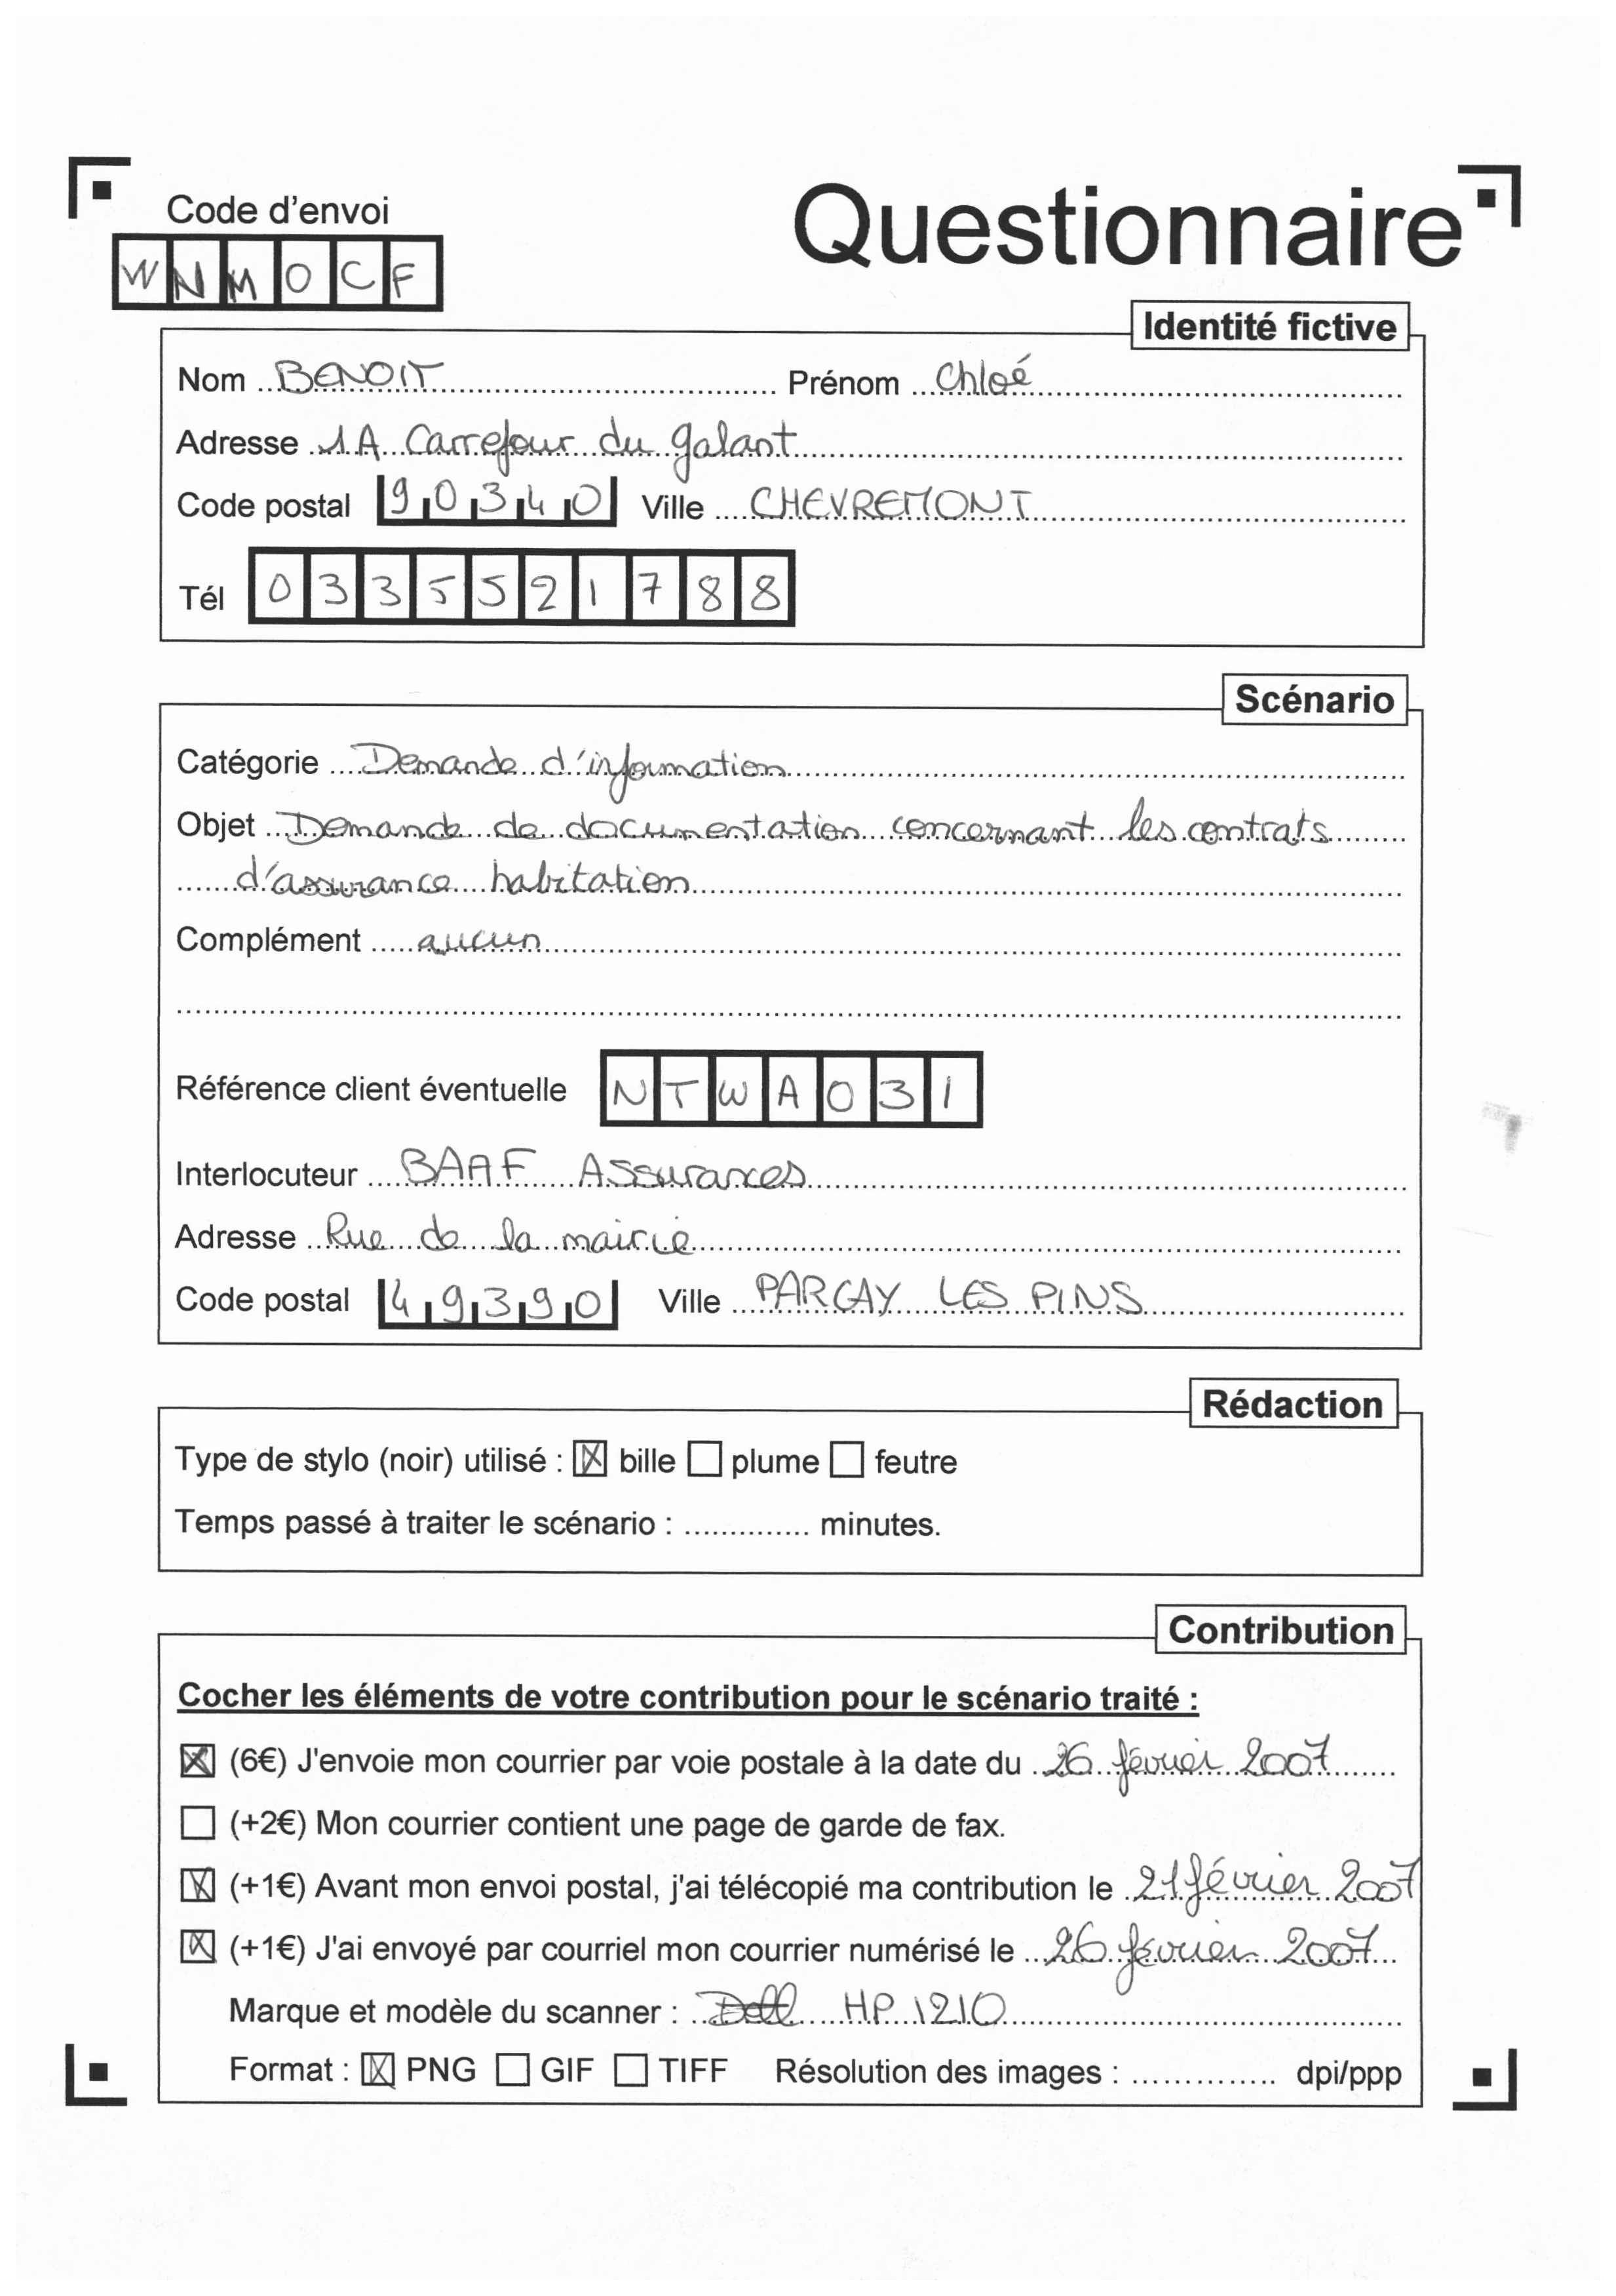 Code d'envoi
Questionnaire
WNMOCF
Identité fictive
Nom BENOIT Prénom Chloé
Adresse 1A Carrefour du galant
Code postal 90340 Ville CHEVREMONT
Tél 0335521788
Scénario
Catégorie Demande d'information
Objet Demande de documentation concernant les contrats
d'assurance habitation
Complément aucun
Référence client éventuelle NTWA031
Interlocuteur BAAF Assurances
Adresse Rue de la mairie
Code postal 49390 Ville PARCAY LES PINS
Rédaction
Type de stylo (noir) utilisé : ☒ bille ☐ plume ☐ feutre
Temps passé à traiter le scénario : .............. minutes.
Contribution
Cocher les éléments de votre contribution pour le scénario traité :
☒ (6€) J'envoie mon courrier par voie postale à la date du 26 février 2007
☐ (+2€) Mon courrier contient une page de garde de fax.
☒ (+1€) Avant mon envoi postal, j'ai télécopié ma contribution le 21 février 2007
☒ (+1€) J'ai envoyé par courriel mon courrier numérisé le 26 février 2007
Marque et modèle du scanner : Dell HP 1210
Format : ☒ PNG ☐ GIF ☐ TIFF Résolution des images : .............. dpi/ppp